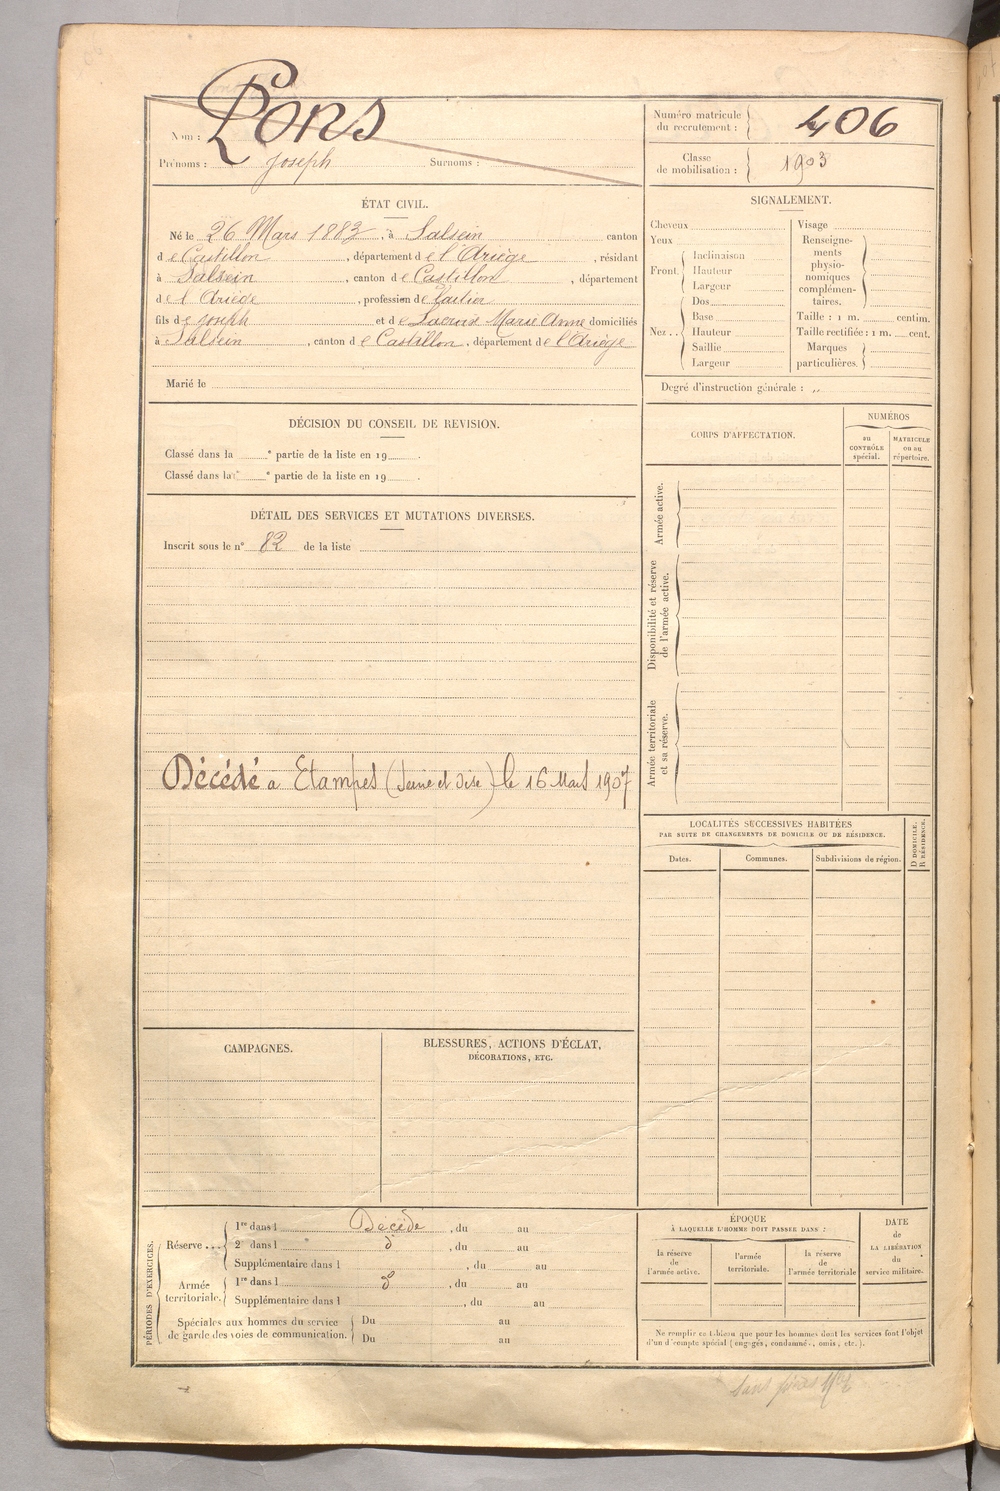 Nom : Pons
Prénoms : Joseph Surnoms :
Numéro matricule du recrutement : 406
Classe de mobilisation : 1903
ÉTAT CIVIL.
Né le 26 Mars 1883, à Salsein canton
de Castillon, département de l'Ariège, résidant
à Salsein, canton de Castillon, département
de l'Ariège, profession de
fils de Joseph et de Lacroix Marie Anne domiciliés
à Salsein, canton de Castillon, département de l'Ariège
Marié le
SIGNALEMENT.
Cheveux
Yeux
Front. Inclinaison
Hauteur
Largeur
Nez.. Dos
Base
Hauteur
Saillie
Largeur
Visage
Renseigne-
ments
physio-
nomiques
complémen-
taires.
Taille : 1 m. centim.
Taille rectifiée : 1 m. cent.
Marques
particulières.
Degré d'instruction générale : "
DÉCISION DU CONSEIL DE REVISION.
Classé dans la e partie de la liste en 19 .
Classé dans la e partie de la liste en 19 .
DÉTAIL DES SERVICES ET MUTATIONS DIVERSES.
Inscrit sous le n° 82 de la liste
Décédé à Etampes (Seine et Oise) le 16 Mars 1907
CORPS D'AFFECTATION.
NUMÉROS
au CONTRÔLE spécial.
MATRICULE ou au répertoire.
Armée active.
Disponibilité et réserve de l'armée active.
Armée territoriale et sa réserve.
LOCALITÉS SUCCESSIVES HABITÉES
PAR SUITE DE CHANGEMENTS DE DOMICILE OU DE RÉSIDENCE.
D DOMICILE.
R RÉSIDENCE.
Dates. Communes. Subdivisions de région.
CAMPAGNES.
BLESSURES, ACTIONS D'ÉCLAT,
DÉCORATIONS, ETC.
PÉRIODES D'EXERCICES.
Réserve... 1re dans l Décédé, du au
2e dans l d°, du au
Supplémentaire dans l , du au
Armée territoriale. 1re dans l d°, du au
Supplémentaire dans l , du au
Spéciales aux hommes du service Du au
de garde des voies de communication. Du au
ÉPOQUE
À LAQUELLE L'HOMME DOIT PASSER DANS :
la réserve de l'armée active.
l'armée territoriale.
la réserve de l'armée territoriale
DATE
de
LA LIBÉRATION
du
service militaire.
Ne remplir ce tableau que pour les hommes dont les services font l'objet
d'un décompte spécial (engagés, condamnés, omis, etc.).